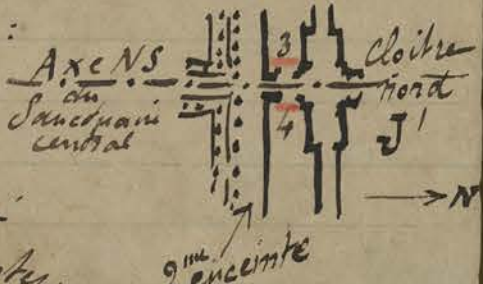 Axe NS
du
Sanctuaire
central
3
4
Cloître
nord
J'
N
2me enceinte